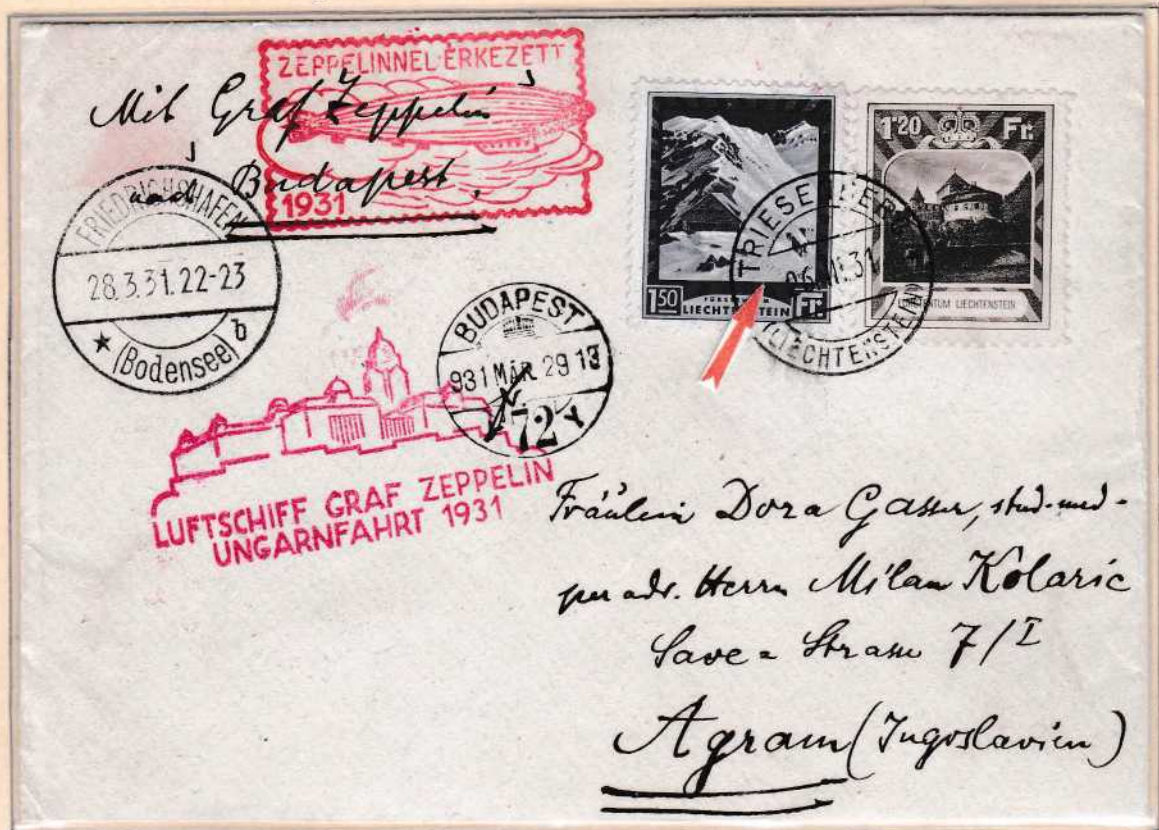 ZEPPELINNEL ERKEZETT
1931
Mit Graf Zeppelin
nach Budapest
FRIEDRICHSHAFEN
28.3.31.22-23
(Bodensee) b
BUDAPEST
931 MÁR. 29 13
72
LUFTSCHIFF GRAF ZEPPELIN
UNGARNFAHRT 1931
1 50 FÜRSTENTUM Fr.
LIECHTENSTEIN
1 20 Fr.
FÜRSTENTUM LIECHTENSTEIN
TRIESENBERG
(LIECHTENSTEIN)
Fräulein Dora Gasser, stud. med.
per adr. Herrn Milan Kolaric
Save-Strasse 7/I
Agram (Jugoslavien)